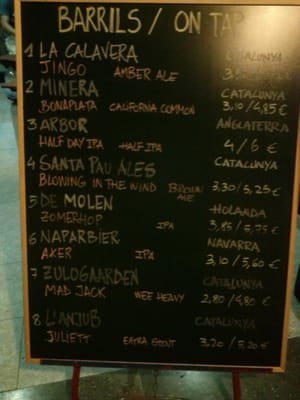 BARRILS / ON TAP
1 LA CALAVERA CATALUNYA
JINGO AMBER ALE
2 MINERA CATALUNYA
BONAPLATA CALIFORNIA COMMON 3,10 / 4,85 €
3 ARBOR ANGLATERRA
HALF DAY IPA HALF IPA 4 / 6 €
4 SANTA PAU ALES CATALUNYA
BLOWING IN THE WIND BROWN ALE 3,30 / 5,25 €
5 DE MOLEN HOLANDA
ZOMERHOP IPA 3,85 / 5,75 €
6 NAPARBIER NAVARRA
AKER IPA 3,10 / 5,60 €
7 ZULOGAARDEN CATALUNYA
MAD JACK WEE HEAVY 2,80 / 4,80 €
8 L'ANJUB CATALUNYA
JULIETT EXTRA STOUT 3,20 / 5,20 €